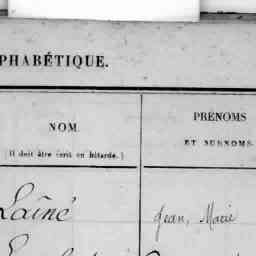 PHABÉTIQUE.
NOM.
(Il doit être écrit en bâtarde.)
PRÉNOMS
ET SURNOMS.
Laîné
Jean, Marie